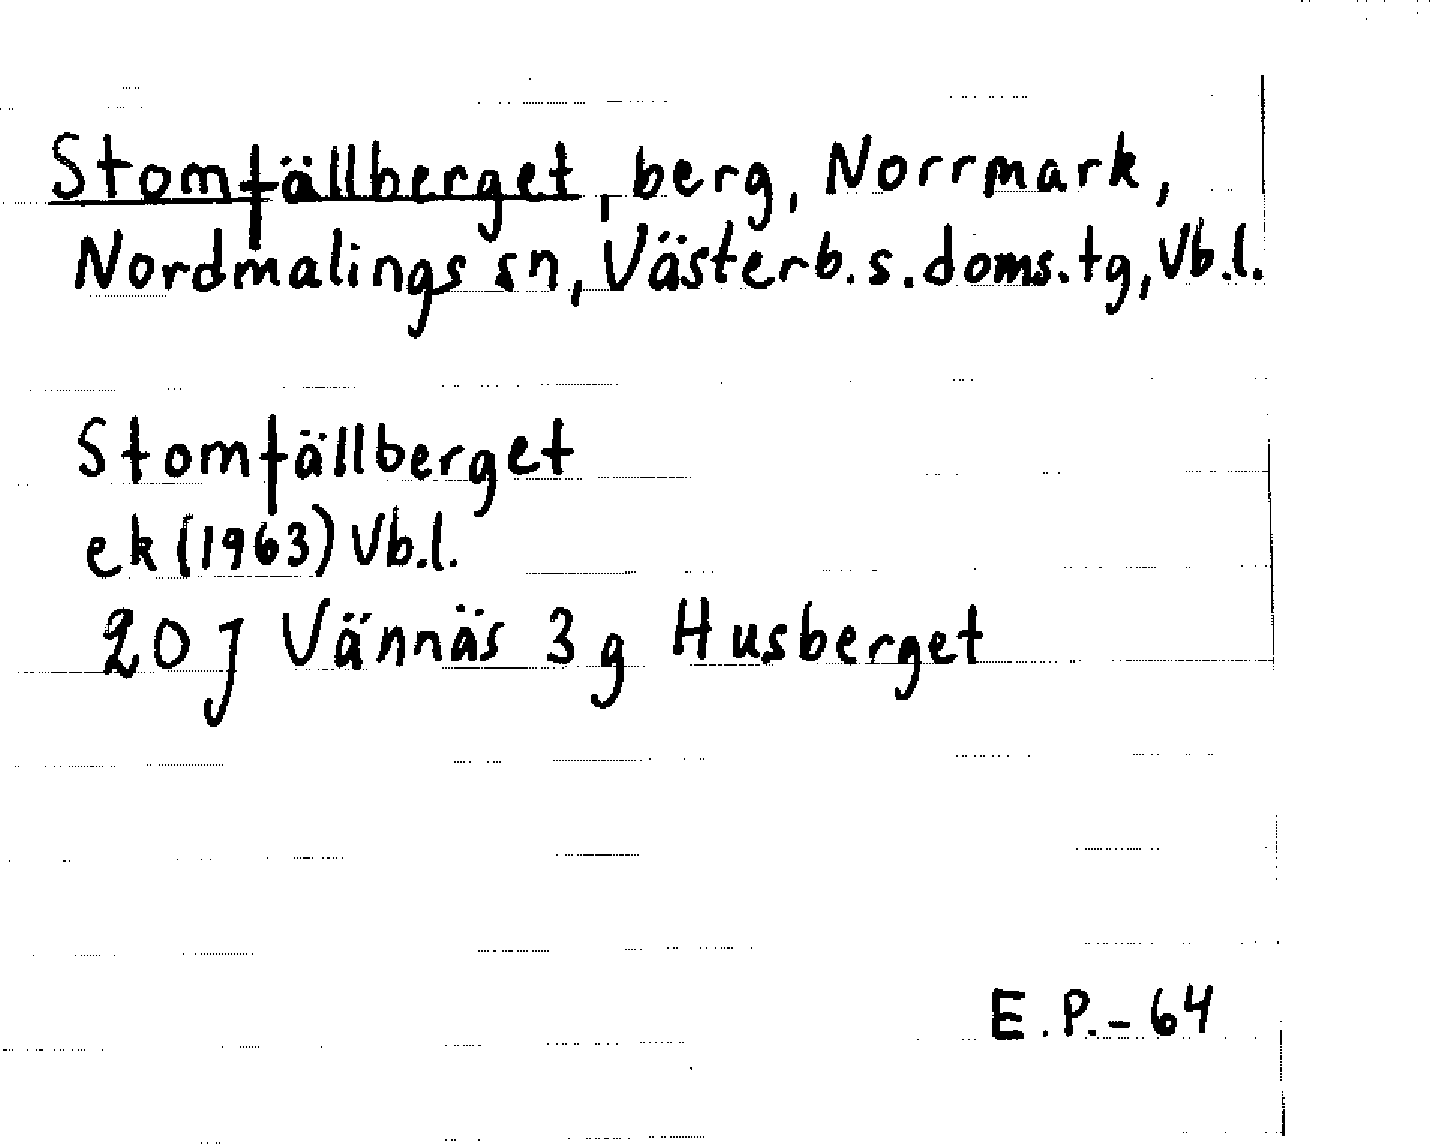 Stomfällberget, berg, Norrmark,
Nordmalings sn, Västerb.s.doms.tg, Vb.l.
Stomfällberget
ek (1963) Vb.l.
20 J Vännäs 3 g Husberget
E.P.-64